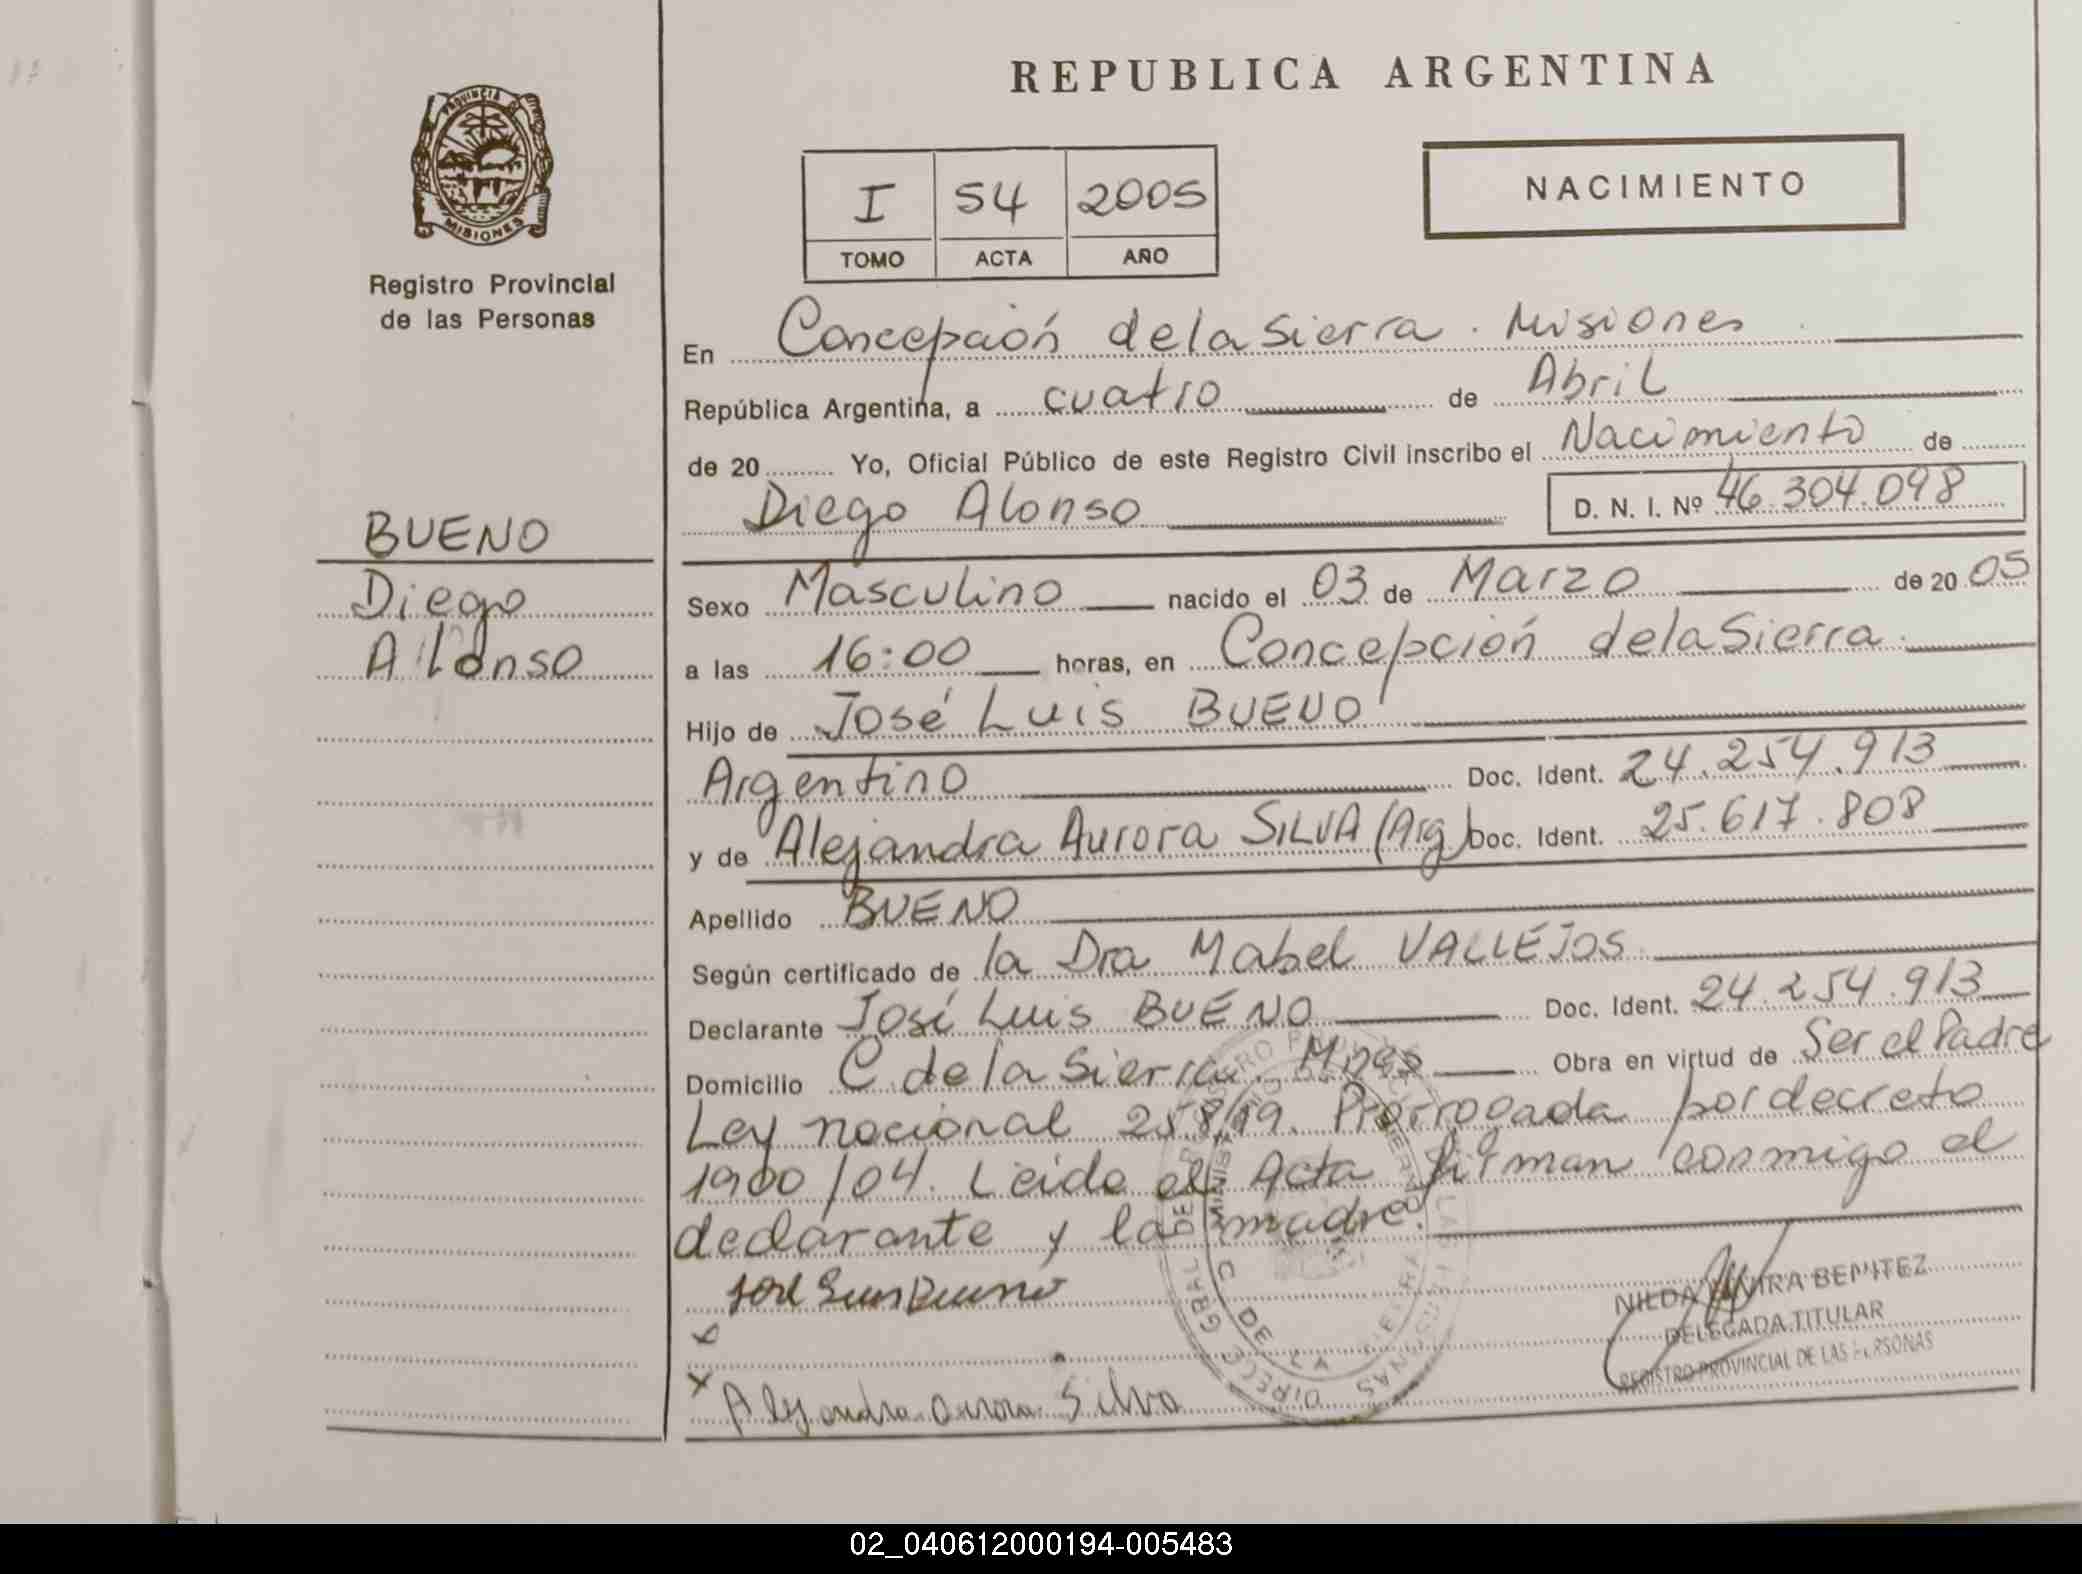 REPUBLICA ARGENTINA
PROVINCIA DE
MISIONES
Registro Provincial
de las Personas
I 54 2005
TOMO ACTA AÑO
NACIMIENTO
En Concepción de la Sierra. Misiones
República Argentina, a cuatro de Abril
de 20 Yo, Oficial Público de este Registro Civil inscribo el Nacimiento de
Diego Alonso D. N. I. Nº 46.304.098
BUENO
Diego
Alonso
Sexo Masculino nacido el 03 de Marzo de 2005
a las 16:00 horas, en Concepción de la Sierra.
Hijo de José Luis BUENO
Argentino Doc. Ident. 24.254.913
y de Alejandra Aurora SILVA (Arg) Doc. Ident. 25.617.808
Apellido BUENO
Según certificado de la Dra Mabel VALLEJOS
Declarante José Luis BUENO Doc. Ident. 24.254.913
Domicilio C. de la Sierra. Mnes Obra en virtud de Ser el Padre
Ley nacional 25819. Prorrogada por decreto
1900/04. Leida el Acta firman conmigo el
declarante y la madre.
José Luis Bueno
x
x Alejandra aurora Silva
C. DE LA SIERRA
NILDA BENITEZ
DELEGADA TITULAR
REGISTRO PROVINCIAL DE LAS PERSONAS
02_040612000194-005483